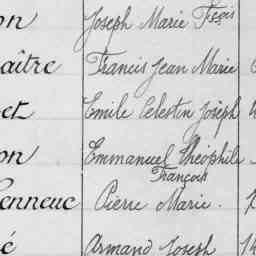 on Joseph Marie Fçois
aître Francis Jean Marie
et Emile Celestin Joseph
on Emmanuel Théophile
François
Pierre Marie.
é Armand Joseph 14